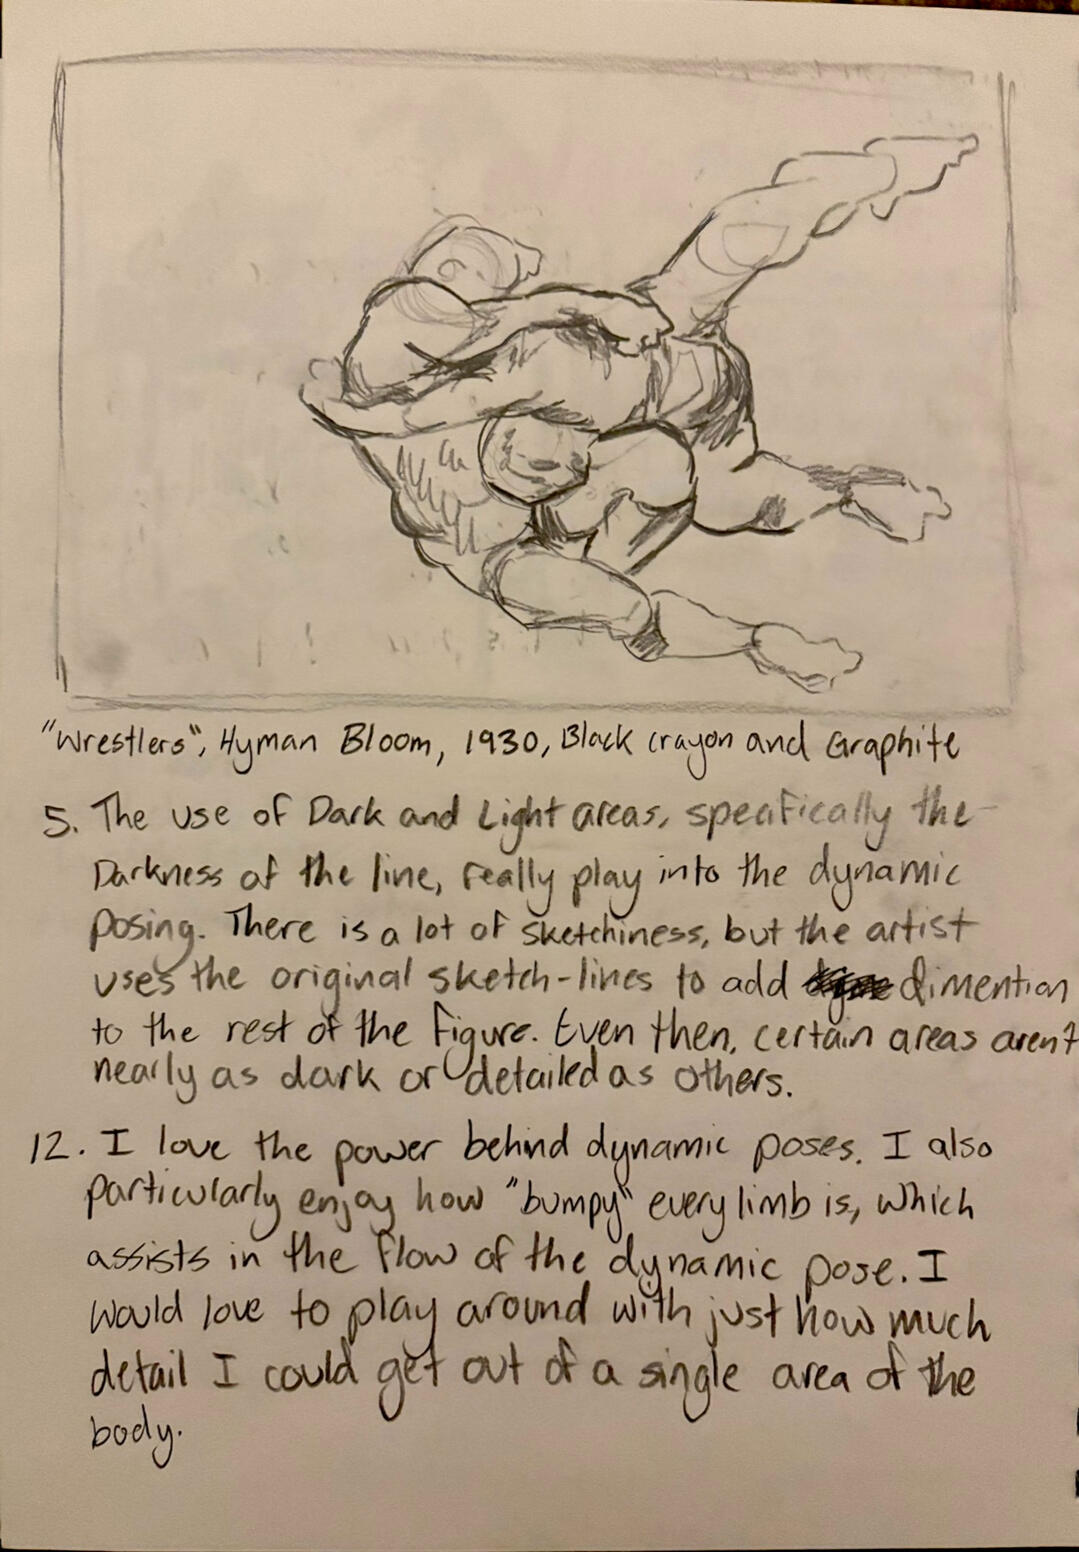 "Wrestlers", Hyman Bloom, 1930, Black crayon and Graphite
5. The use of Dark and Light areas, specifically the
Darkness of the line, really play into the dynamic
posing. There is a lot of sketchiness, but the artist
uses the original sketch-lines to add dimention
to the rest of the figure. Even then, certain areas aren't
nearly as dark or detailed as others.
12. I love the power behind dynamic poses. I also
particularly enjoy how "bumpy" every limb is, which
assists in the flow of the dynamic pose. I
would love to play around with just how much
detail I could get out of a single area of the
body.